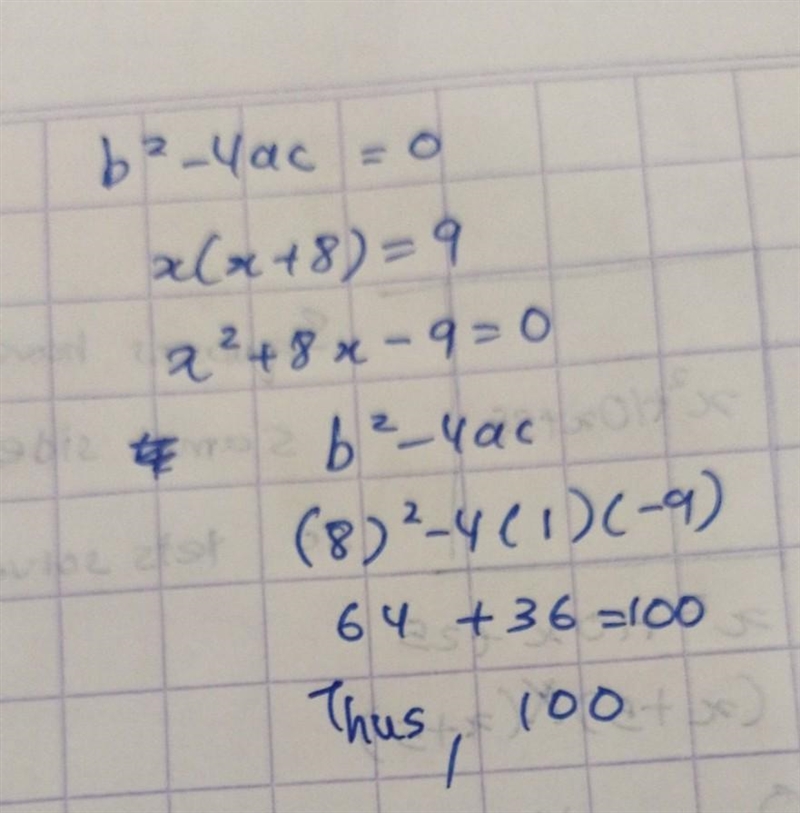 b² - 4ac = 0
x(x+8) = 9
x² + 8x - 9 = 0
b² - 4ac
(8)² - 4(1)(-9)
64 + 36 = 100
Thus, 100